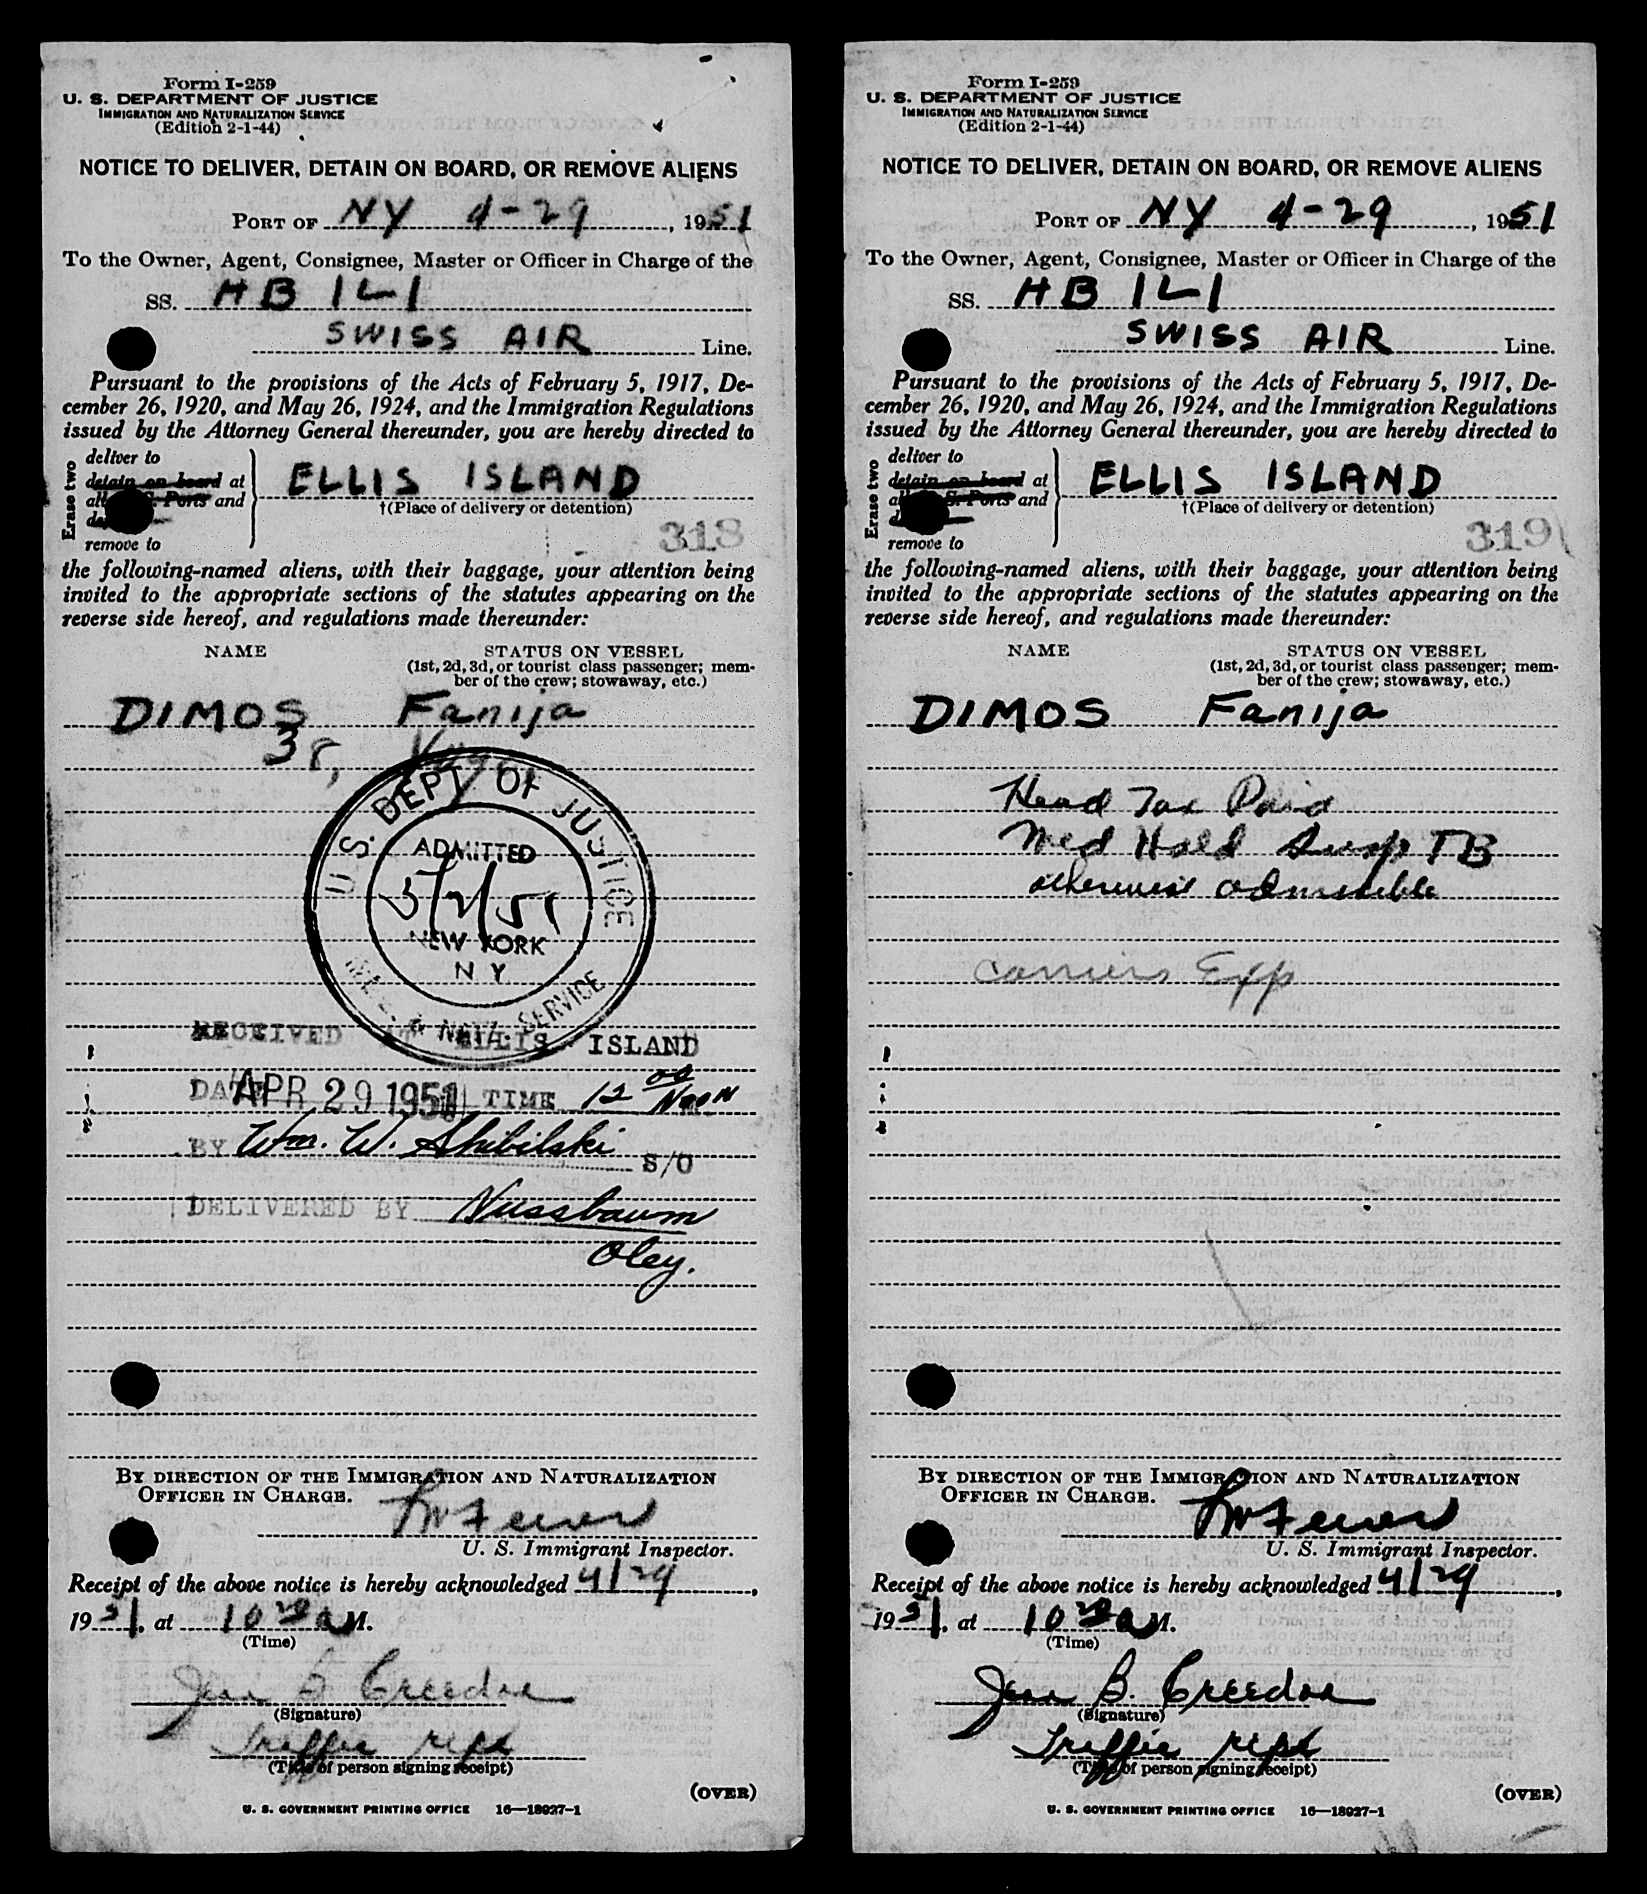 Form I-259
U. S. DEPARTMENT OF JUSTICE
IMMIGRATION AND NATURALIZATION SERVICE
(Edition 2-1-44)
NOTICE TO DELIVER, DETAIN ON BOARD, OR REMOVE ALIENS
PORT OF NY 4-29, 1951
To the Owner, Agent, Consignee, Master or Officer in Charge of the
SS. HB ILI
SWISS AIR Line.
Pursuant to the provisions of the Acts of February 5, 1917, De-
cember 26, 1920, and May 26, 1924, and the Immigration Regulations
issued by the Attorney General thereunder, you are hereby directed to
Erase two
deliver to
detain on board at
all S. Ports and
remove to
ELLIS ISLAND
†(Place of delivery or detention)
318
the following-named aliens, with their baggage, your attention being
invited to the appropriate sections of the statutes appearing on the
reverse side hereof, and regulations made thereunder:
NAME STATUS ON VESSEL
(1st, 2d, 3d, or tourist class passenger; mem-
ber of the crew; stowaway, etc.)
DIMOS Fanija
38,
U. S. DEPT OF JUSTICE
ADMITTED
5/2/51
NEW YORK
N Y
& NATZ. SERVICE
RECEIVED AT ELLIS ISLAND
DATE APR 29 1951 TIME 12 00 Noon
BY Wm. W. Shibilski S/O
DELIVERED BY Nussbaum
Oley.
BY DIRECTION OF THE IMMIGRATION AND NATURALIZATION
OFFICER IN CHARGE.
U. S. Immigrant Inspector.
Receipt of the above notice is hereby acknowledged 4/29,
1951, at 10 20 a M.
(Time)
Jean B. Creedon
(Signature)
Traffic rept
(Title of person signing receipt)
(OVER)
U. S. GOVERNMENT PRINTING OFFICE 16—18927-1
Form I-259
U. S. DEPARTMENT OF JUSTICE
IMMIGRATION AND NATURALIZATION SERVICE
(Edition 2-1-44)
NOTICE TO DELIVER, DETAIN ON BOARD, OR REMOVE ALIENS
PORT OF NY 4-29, 1951
To the Owner, Agent, Consignee, Master or Officer in Charge of the
SS. HB ILI
SWISS AIR Line.
Pursuant to the provisions of the Acts of February 5, 1917, De-
cember 26, 1920, and May 26, 1924, and the Immigration Regulations
issued by the Attorney General thereunder, you are hereby directed to
Erase two
deliver to
detain on board at
S. Ports and
remove to
ELLIS ISLAND
†(Place of delivery or detention)
319
the following-named aliens, with their baggage, your attention being
invited to the appropriate sections of the statutes appearing on the
reverse side hereof, and regulations made thereunder:
NAME STATUS ON VESSEL
(1st, 2d, 3d, or tourist class passenger; mem-
ber of the crew; stowaway, etc.)
DIMOS Fanija
Head Tax Paid
Med Hold Susp TB
otherwise admissible
Carriers Exp
BY DIRECTION OF THE IMMIGRATION AND NATURALIZATION
OFFICER IN CHARGE.
U. S. Immigrant Inspector.
Receipt of the above notice is hereby acknowledged 4/29,
1951, at 10 20 a M.
(Time)
Jean B. Creedon
(Signature)
Traffic rept
(Title of person signing receipt)
(OVER)
U. S. GOVERNMENT PRINTING OFFICE 16—18927-1